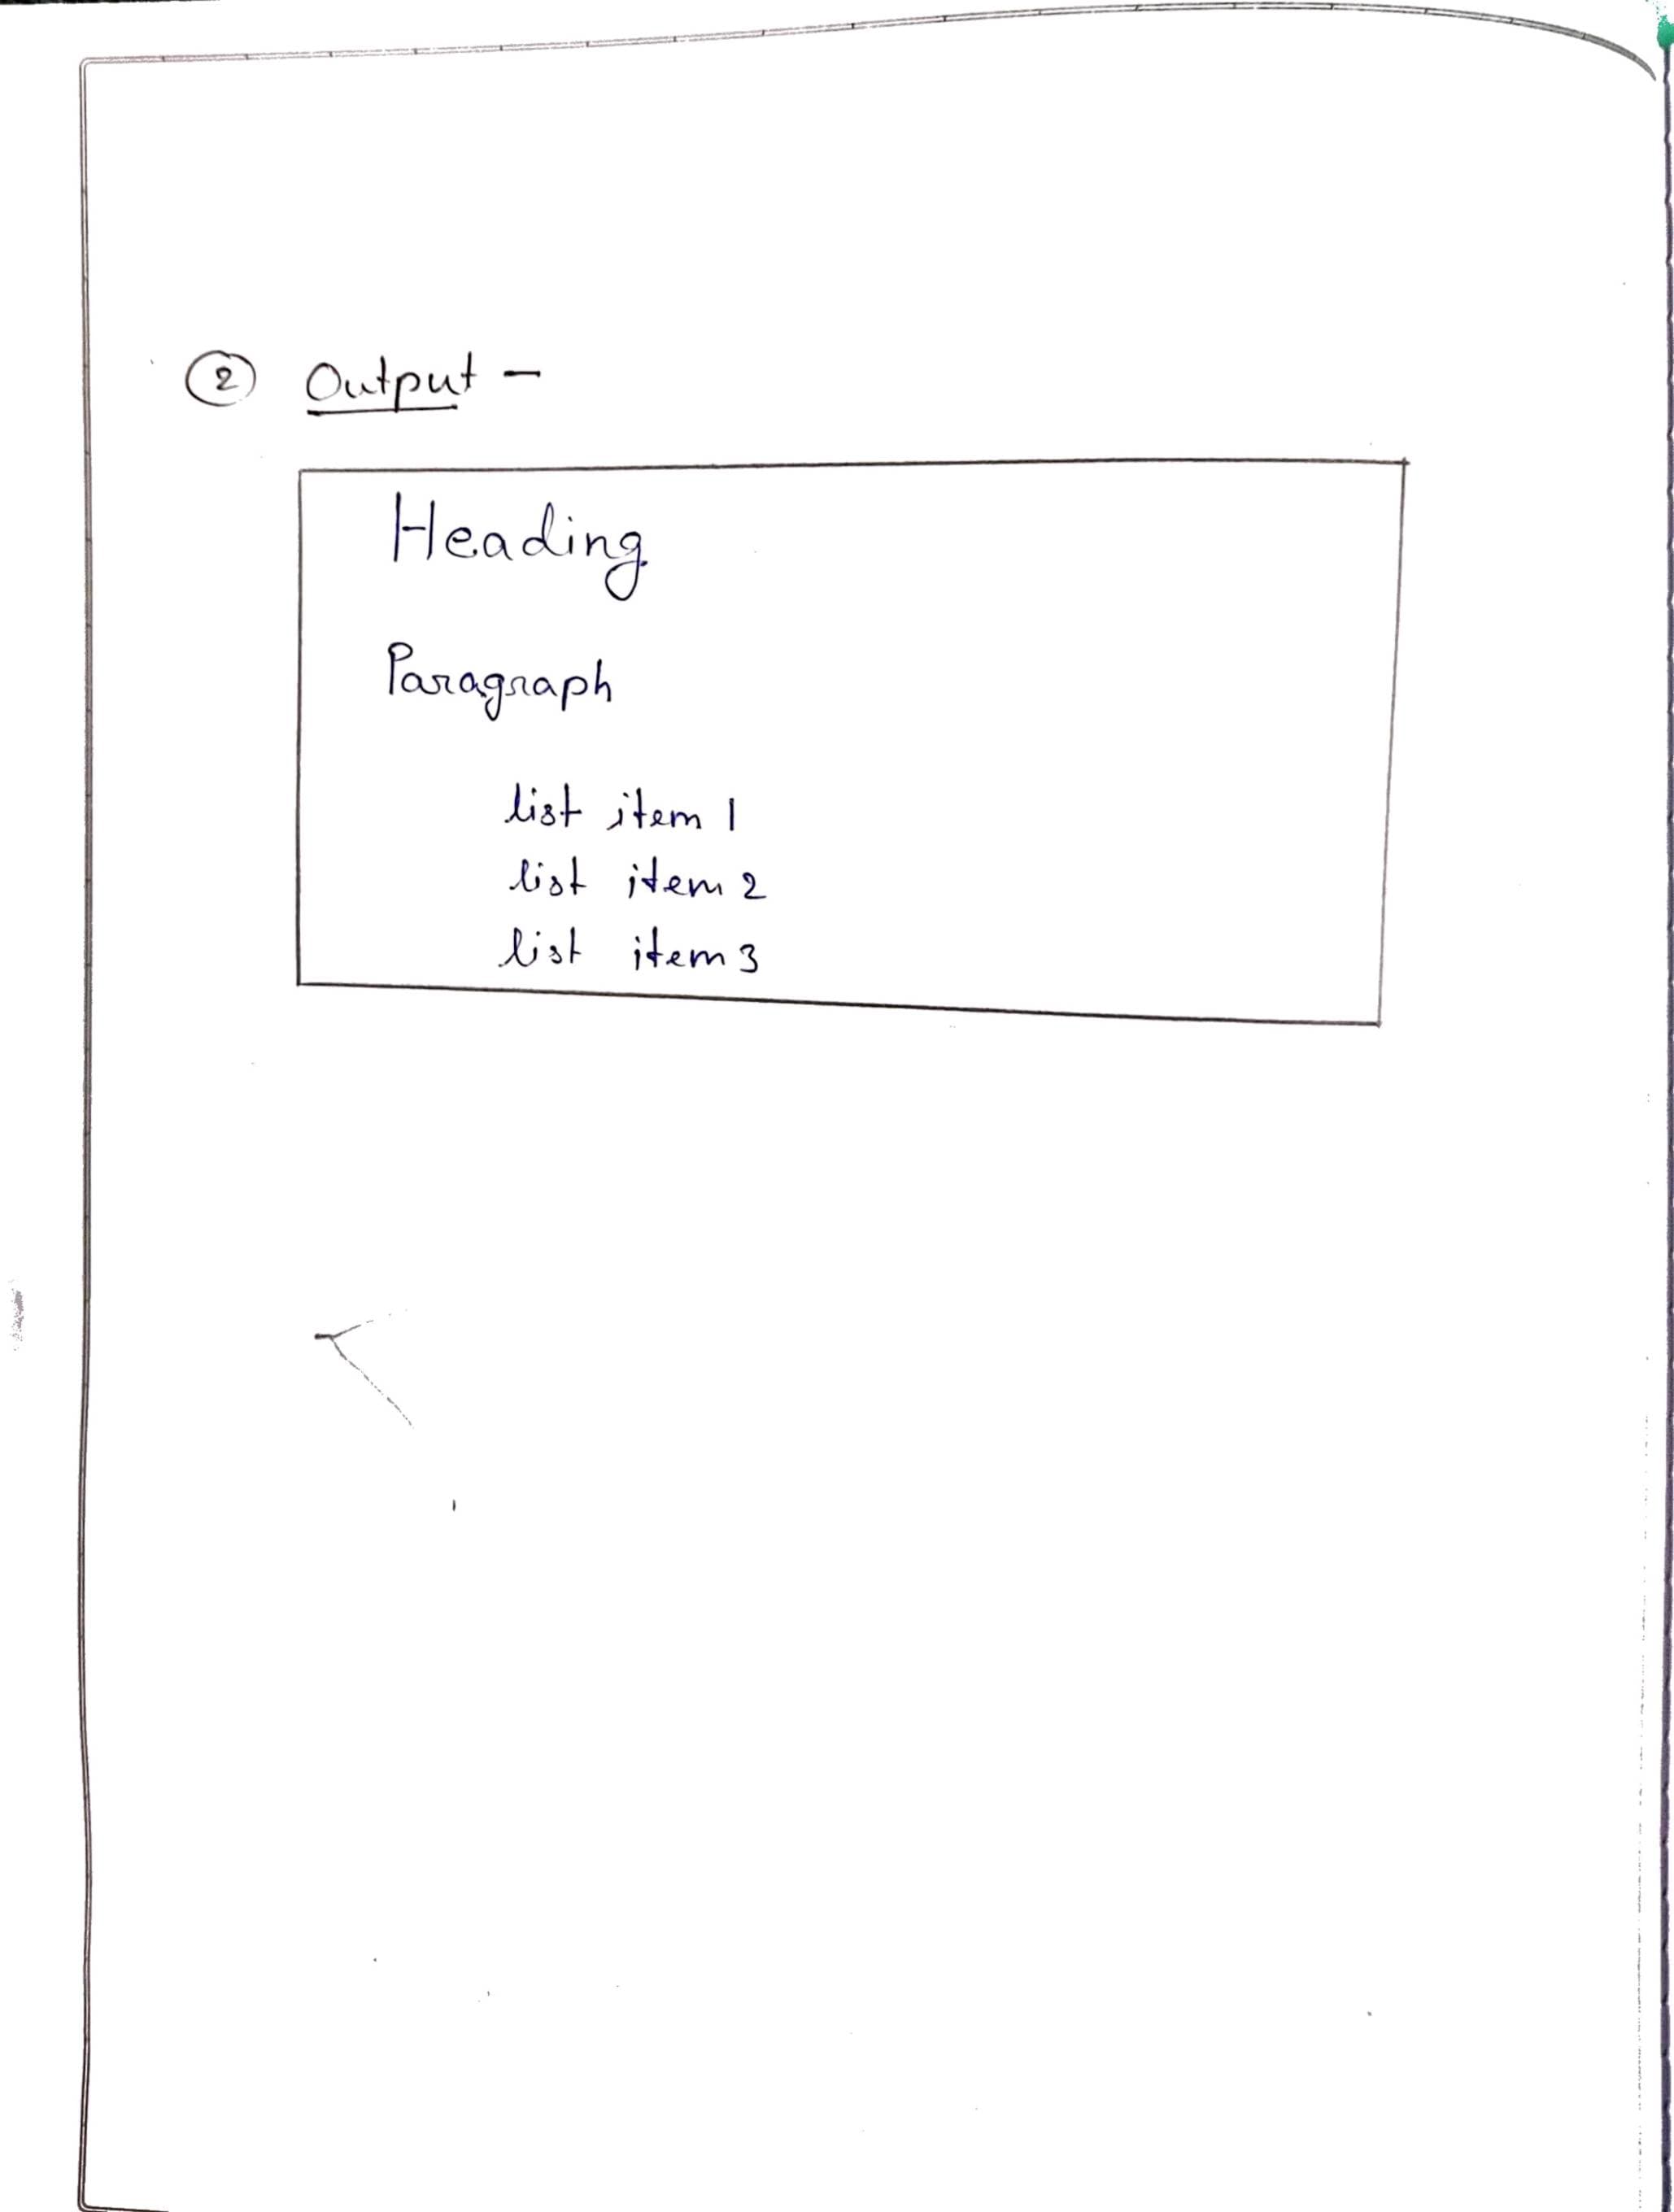 ② Output -
Heading
Paragraph
list item 1
list item 2
list item 3